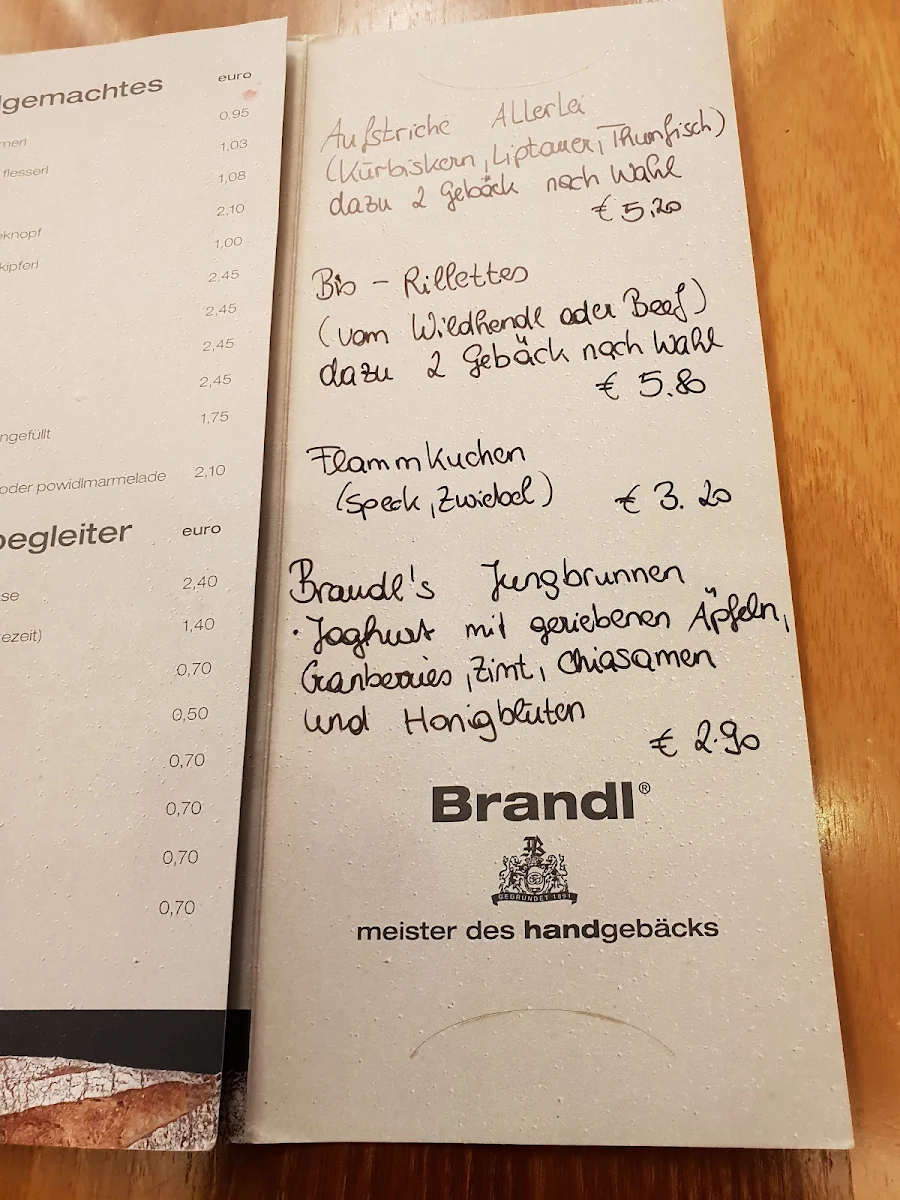 lgemachtes euro
0,95
merl 1,03
flesserl 1,08
2,10
eknopf 1,00
kipferl 2,45
2,45
2,45
2,45
1,75
ngefüllt
oder powidlmarmelade 2,10
begleiter euro
se 2,40
ezeit) 1,40
0,70
0,50
0,70
0,70
0,70
0,70
Aufstriche Allerlei
(Kürbiskern, Liptauer, Thunfisch)
dazu 2 Gebäck nach Wahl
€ 5,20
Bio - Rillettes
(vom Wildhendl oder Beef)
dazu 2 Gebäck nach Wahl
€ 5.80
Flammkuchen
(Speck, Zwiebel) € 3.20
Brandl's Jungbrunnen
·Joghurt mit geriebenen Äpfeln,
Cranberries, Zimt, Chiasamen
und Honigblüten
€ 2.90
Brandl®
JB
GEGRÜNDET 1891
meister des handgebäcks